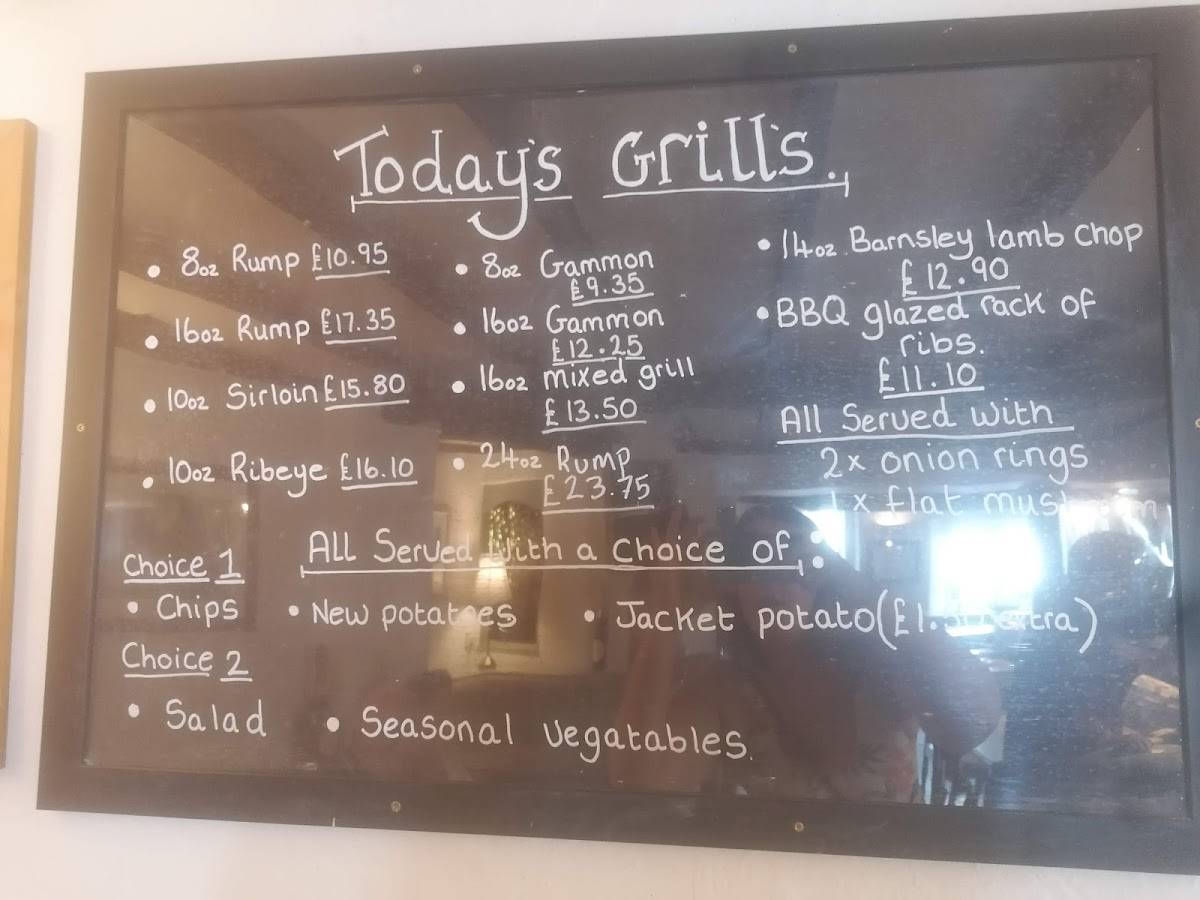 Today's Grill's.
• 8oz Rump £10.95
• 16oz Rump £17.35
• 10oz Sirloin £15.80
• 10oz Ribeye £16.10
• 8oz Gammon
£9.35
• 16oz Gammon
£12.25
• 16oz mixed grill
£13.50
• 24oz Rump
£23.75
• 14oz Barnsley lamb chop
£12.90
• BBQ glazed rack of
ribs.
£11.10
All Served With
2x onion rings
1 x flat
ALL Served with a choice of :
Choice 1
• Chips • New potatoes • Jacket potato
Choice 2
• Salad • Seasonal vegatables.